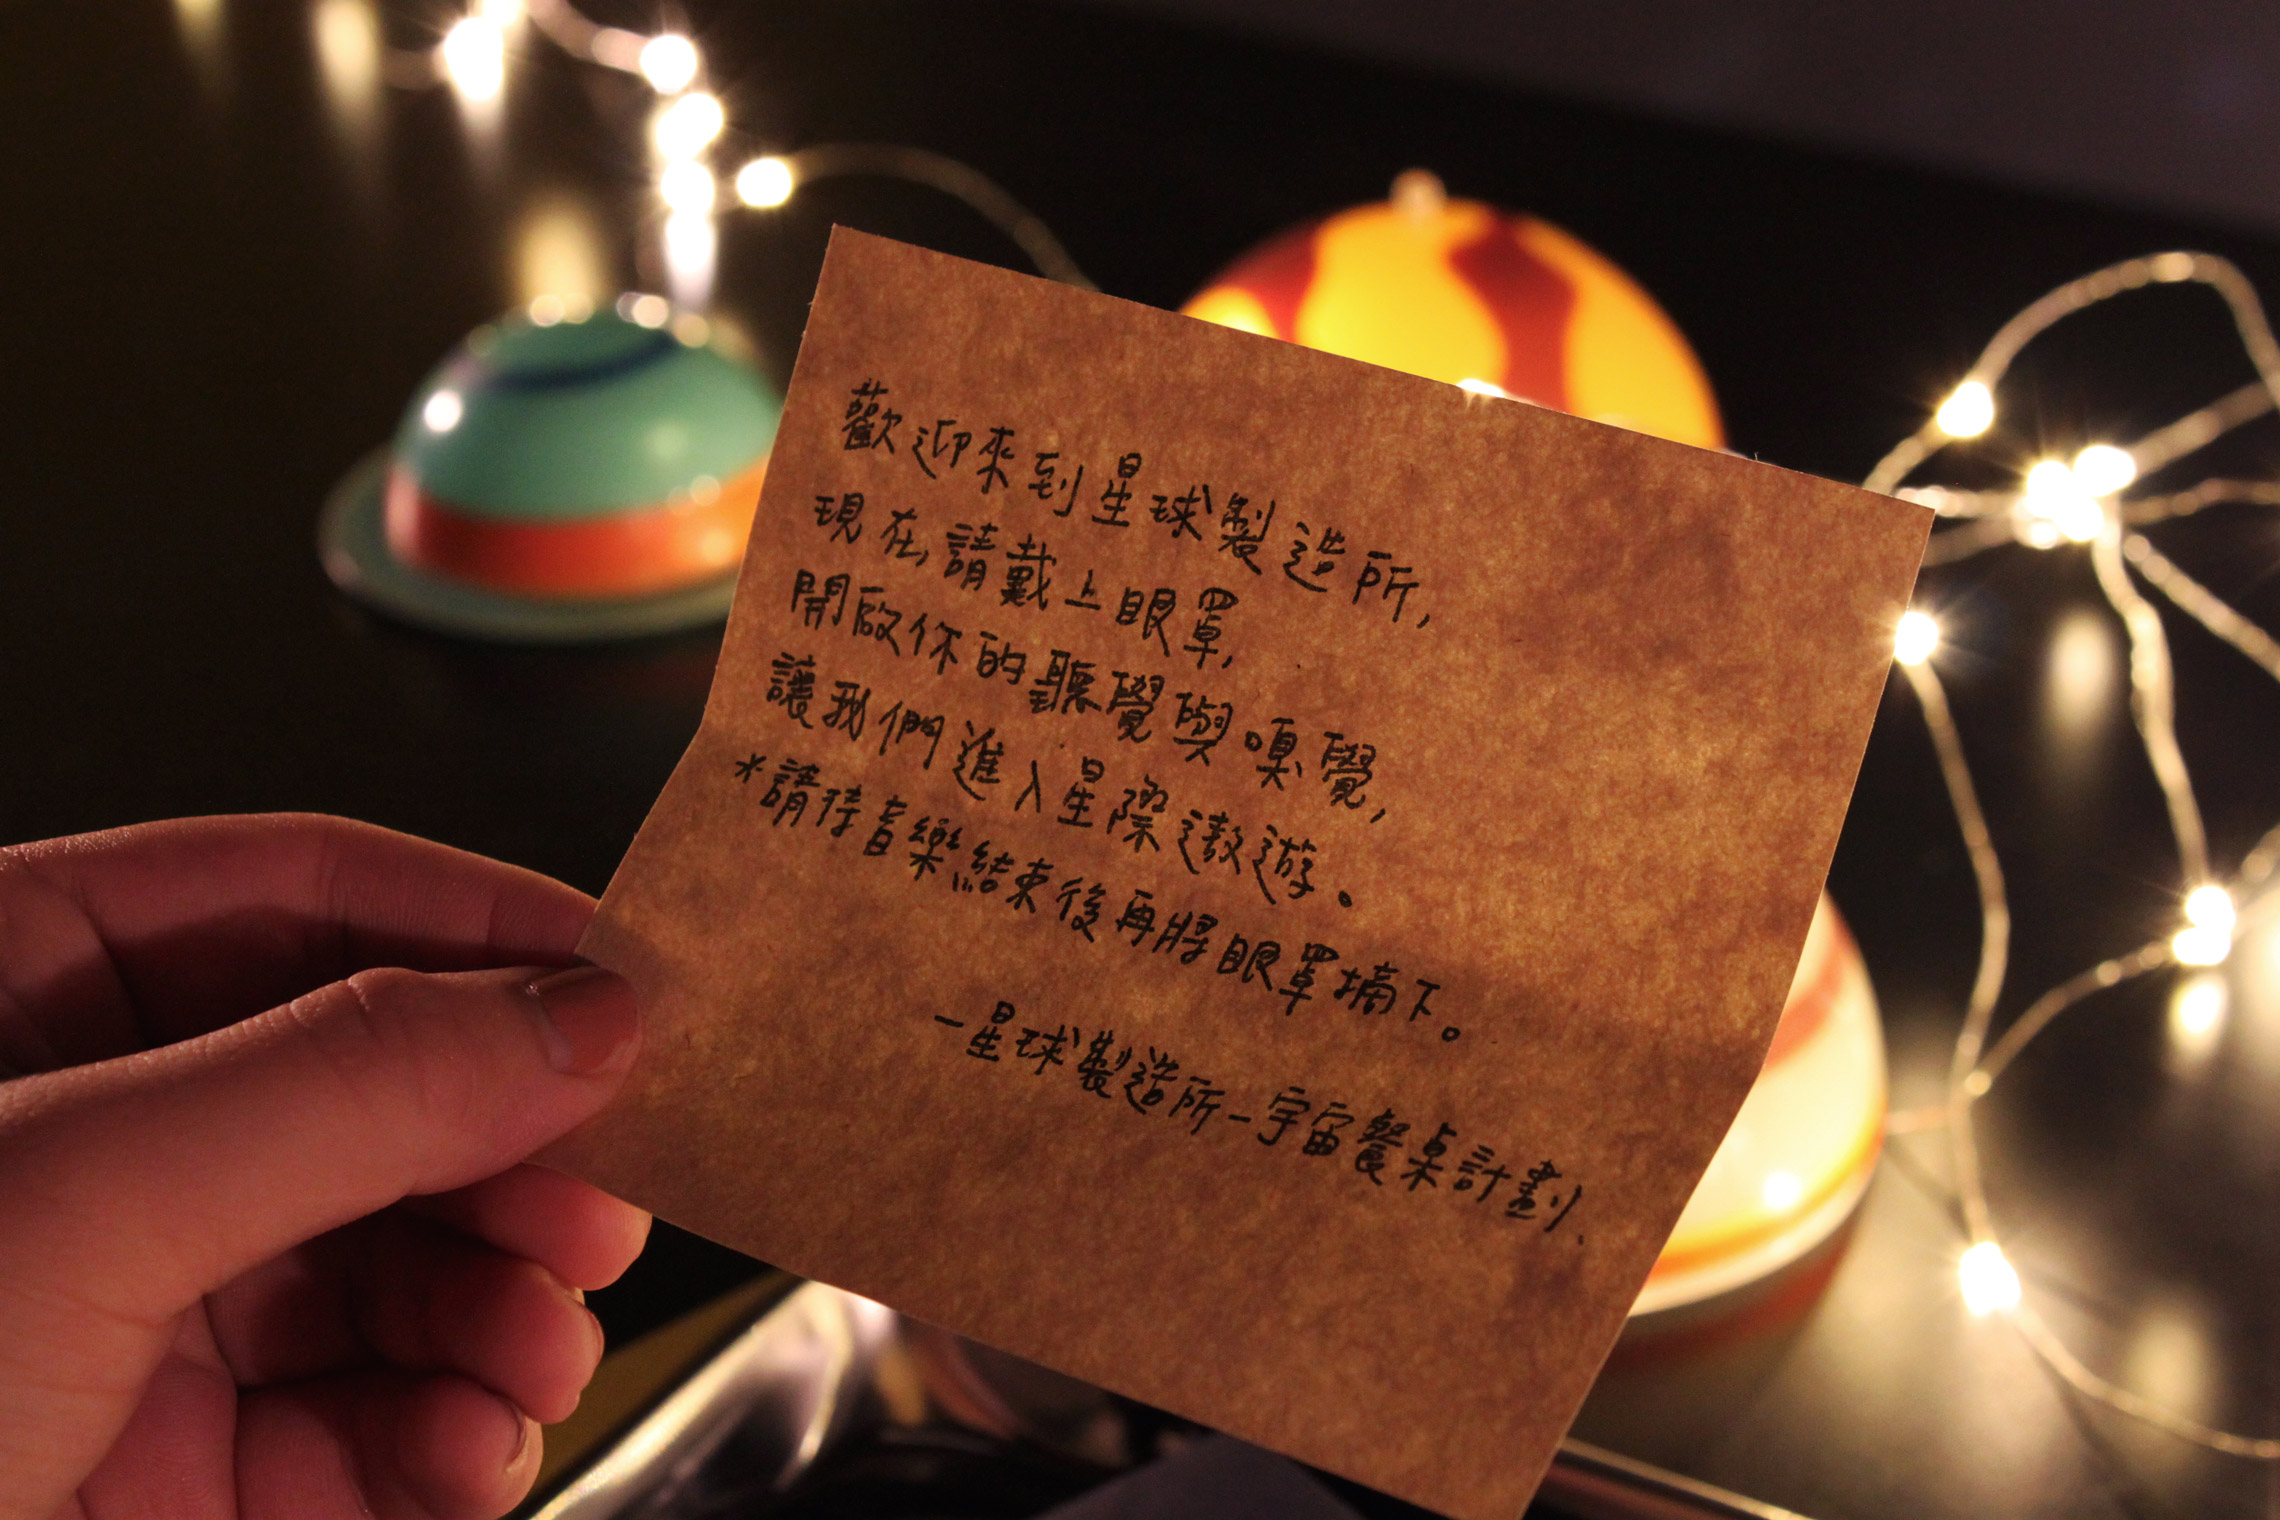 歡迎來到星球製造所,
現在,請戴上眼罩,
開啟你的聽覺與嗅覺,
讓我們進入星際遨遊。
*請待音樂結束後再將眼罩摘下。
–星球製造所–宇宙餐桌計劃.